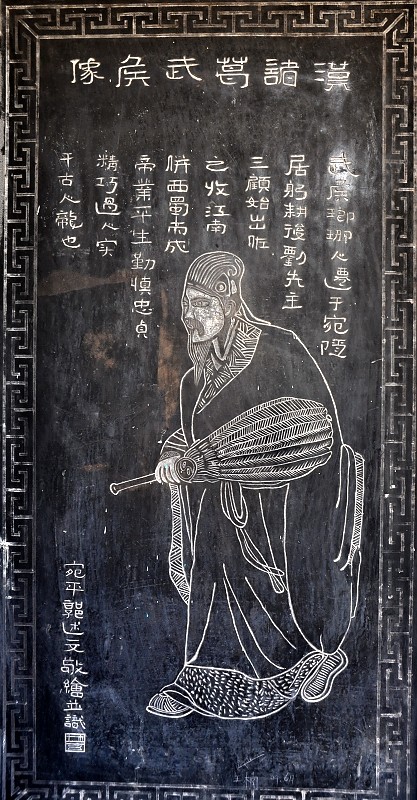 漢諸葛武侯像
武侯瑯琊人遷于宛隱
居躬耕後劉先主
三顧始出佐
之收江南
併西蜀而成
帝業平生勤慎忠貞
精巧過人实
千古人龍也
宛平郭述文敬繪並識